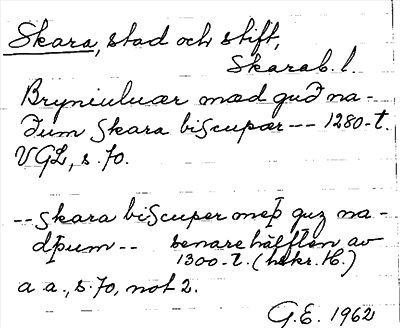 Skara, stad och stift,
Skarab. l.
Bryniuluær mæd guð na-
ðum Skara biscupær -- 1280-t.
VGL, s. 70.
-- skara biscuper meþ guz na-
dþum -- senare hälften av
1300-t. (hskr. H.)
a a., s. 70, not 2.
G.E. 1962